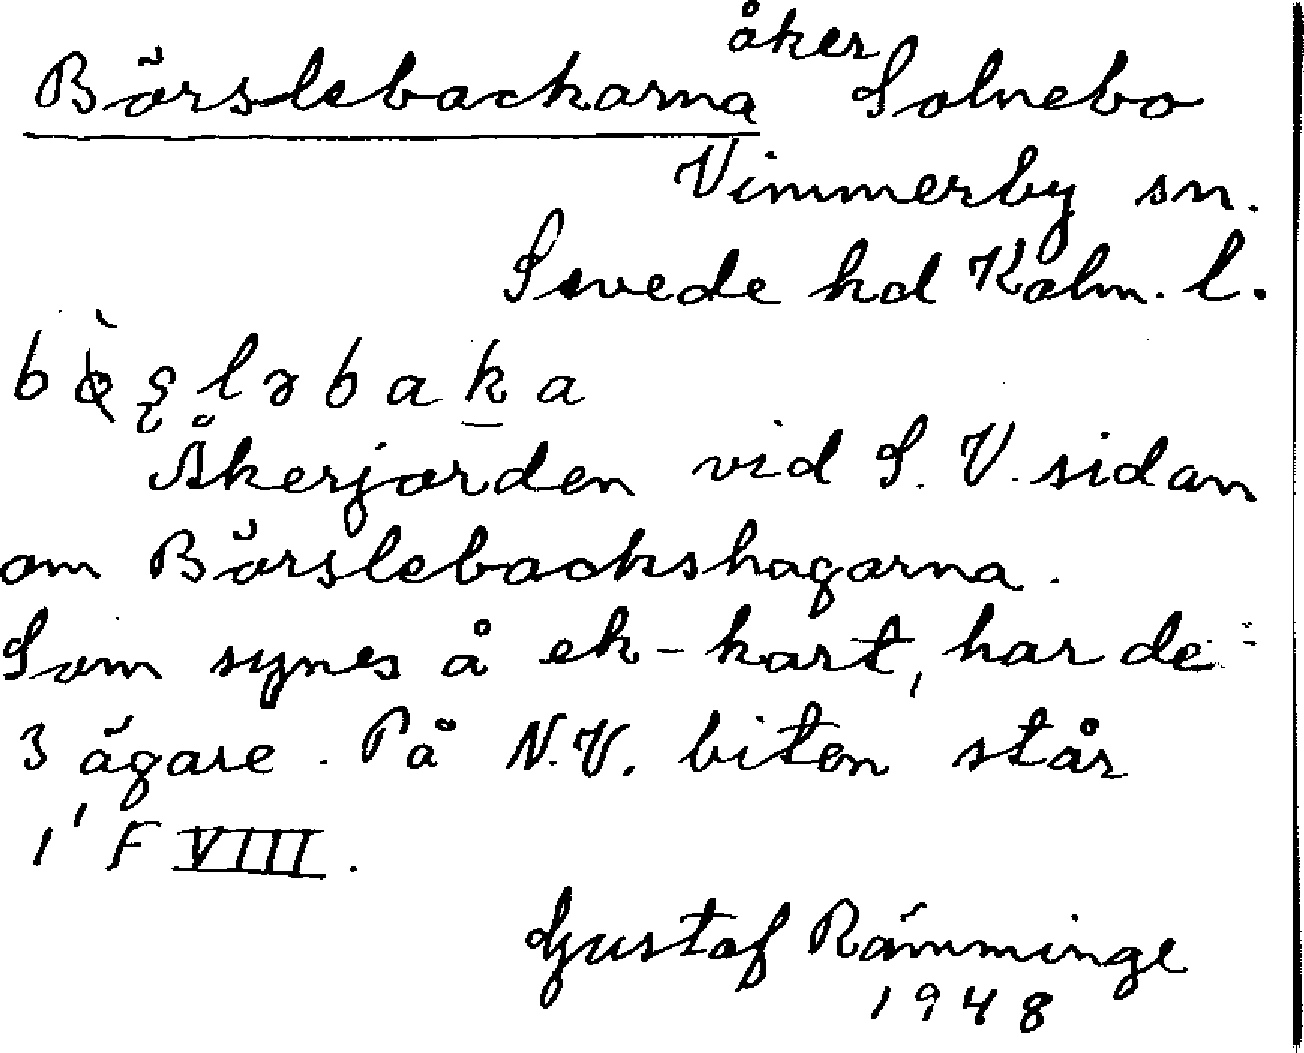 Börslebackarna åker Solnebo
Vimmerby sn.
Sevede hd Kalm. l.
Åkerjorden vid S. V. sidan
om Börslebackshagarna.
Som synes å ek-kart, har de
3 ägare. På N.V. biten står
1' F VIII.
Gustaf Rämminge
1948